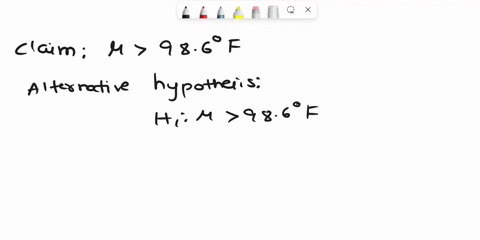 Claim: μ > 98.6° F
Alternative hypothesis:
H₁: μ > 98.6° F